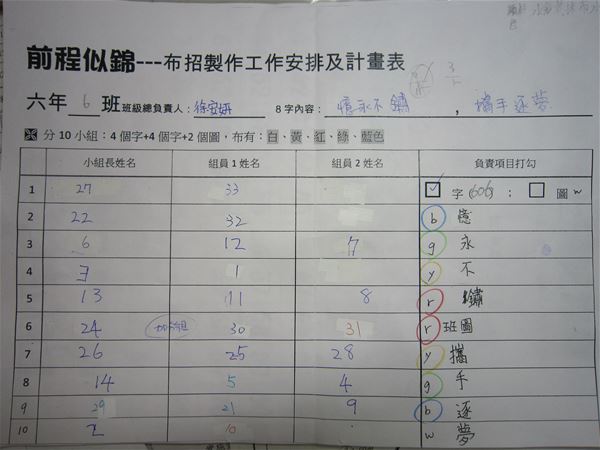 前程似錦---布招製作工作安排及計畫表
六年 6 班 班級總負責人：徐安妍 8字內容： 憶永不鏽 ， 攜手逐夢
分10小組：4個字+4個字+2個圖，布有：白、黃、紅、綠、藍色
小組長姓名 組員1姓名 組員2姓名 負責項目打勾
1 27 33 ☑ 字(606)： □ 圖~
2 22 32 b 憶
3 6 12 7 g 永
4 3 1 y 不
5 13 11 8 r 鏽
6 24 30 31 r 班圖
7 26 25 28 y 攜
8 14 5 4 g 手
9 29 21 9 b 逐
10 2 10 w 夢